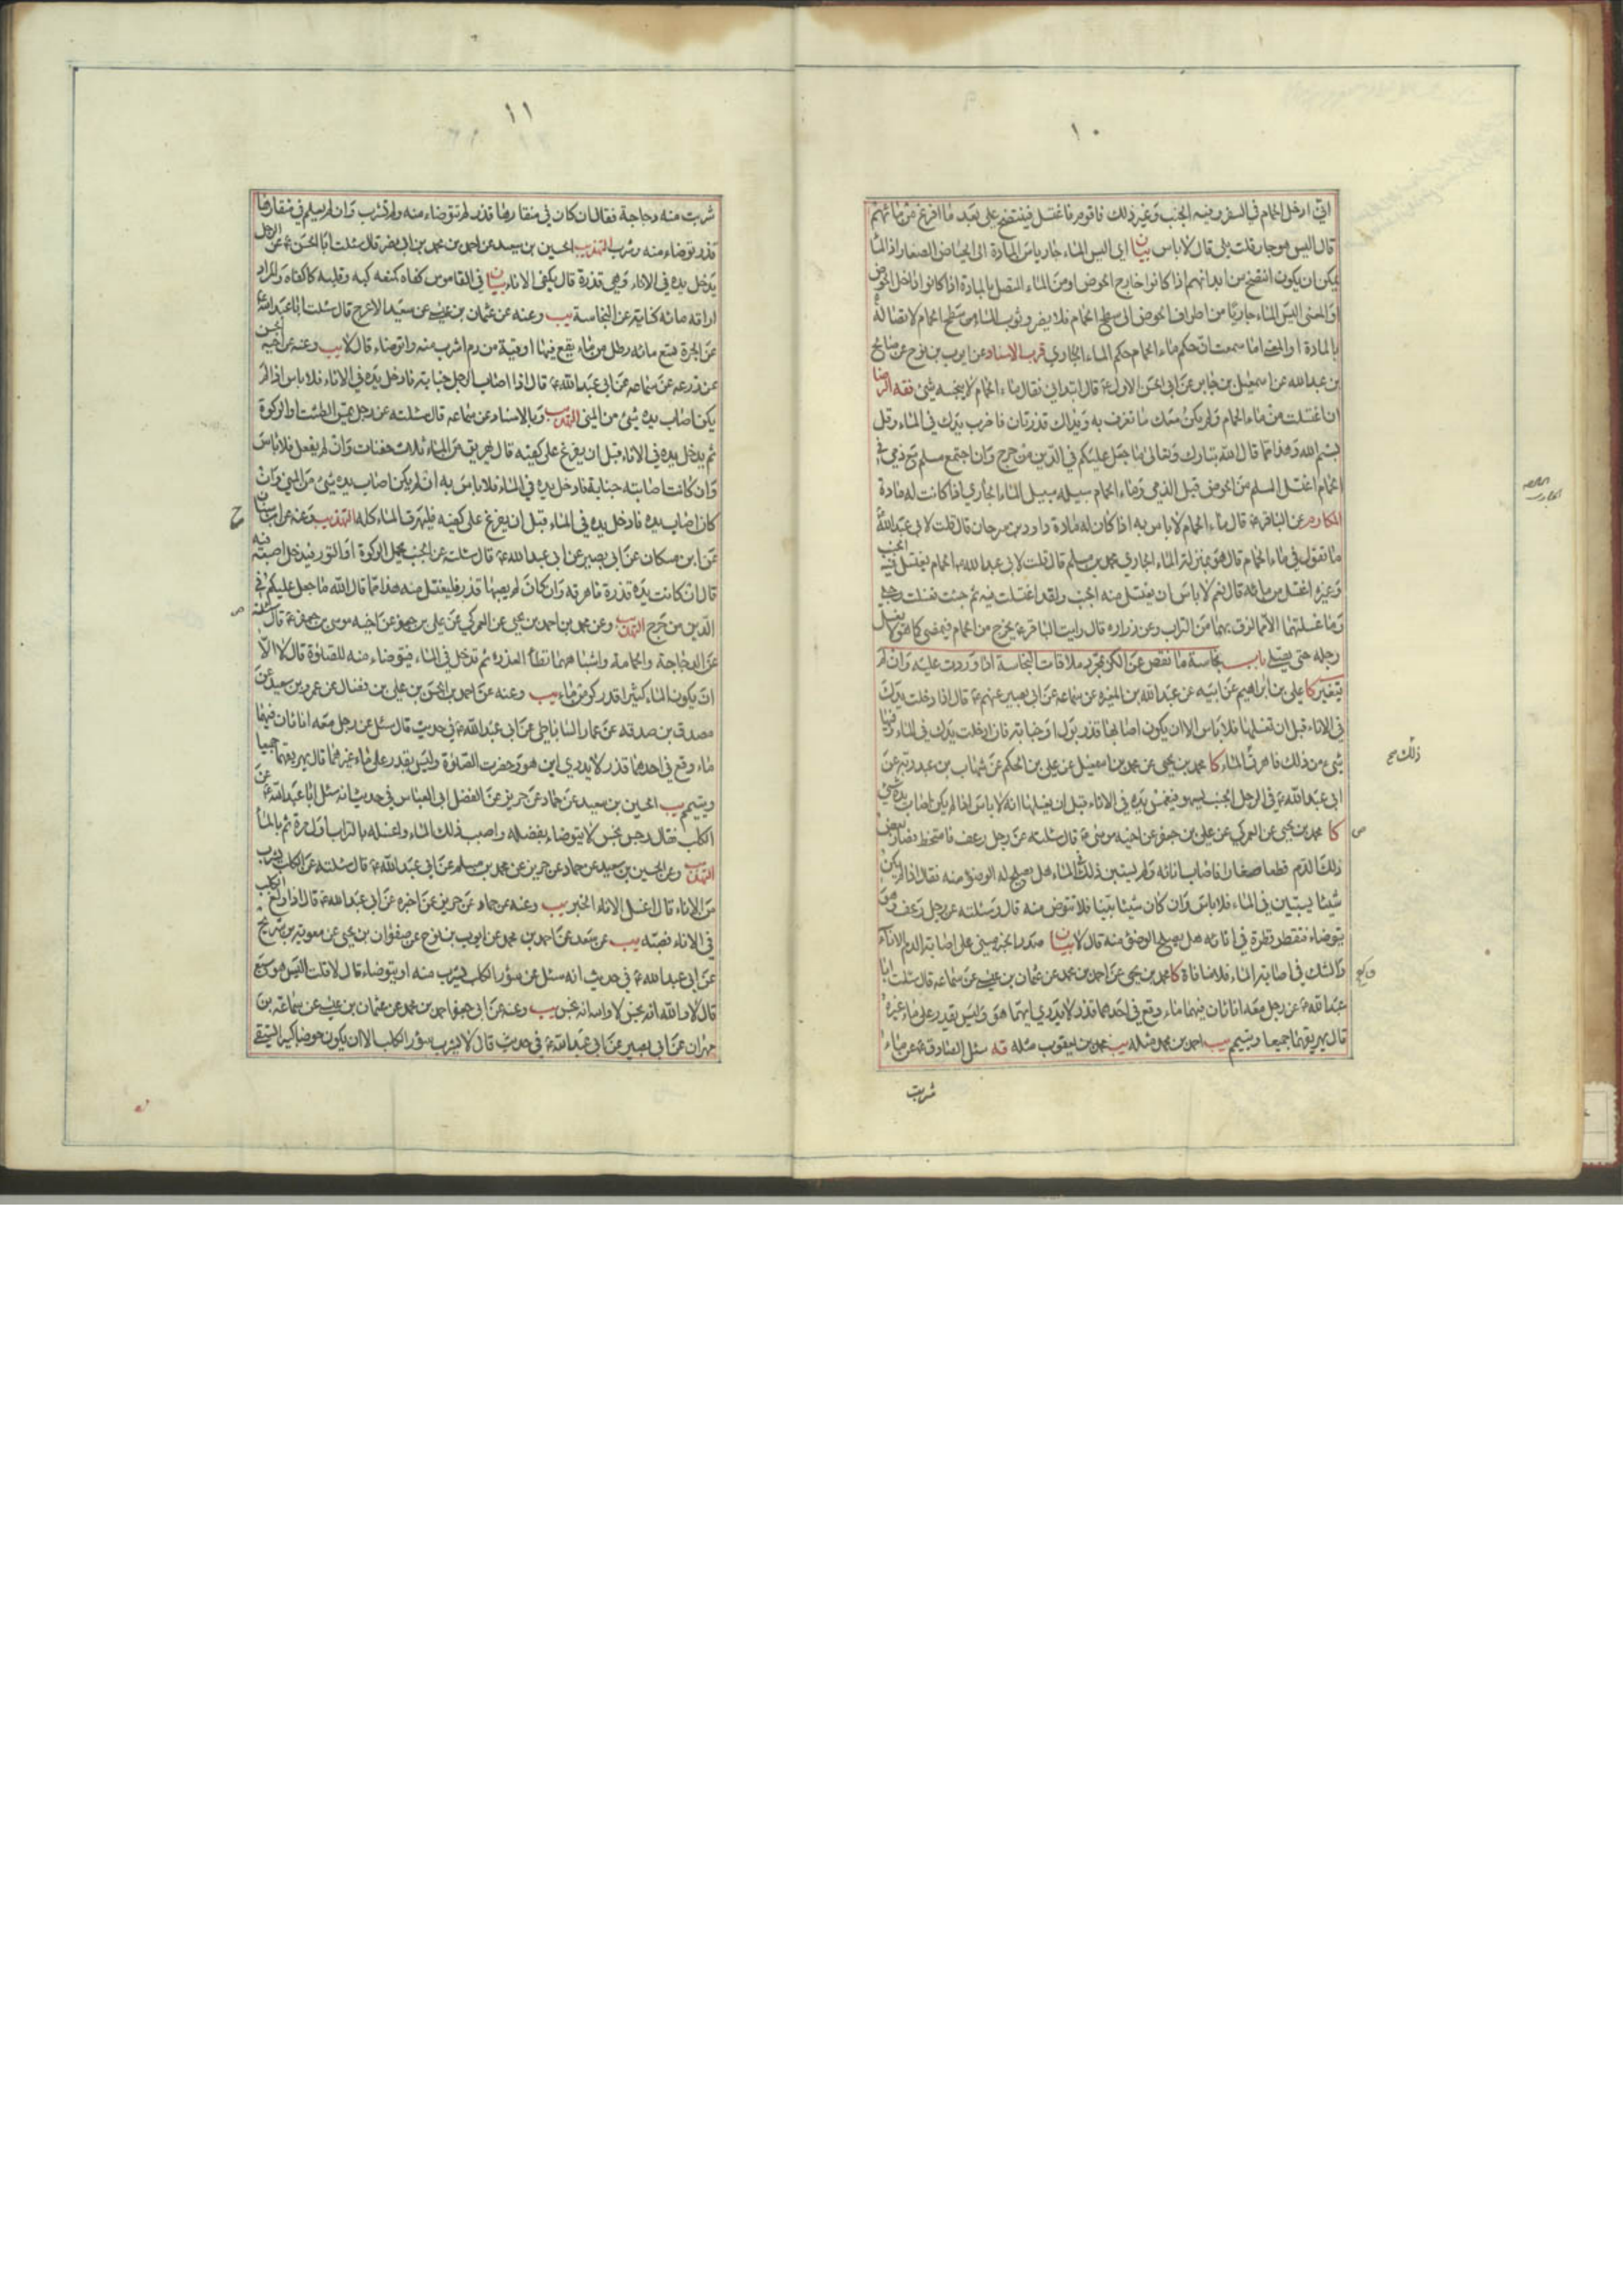 ١٠
انّي ادخل الحمام في السحر وفيه الجنب وغير ذلك فاقوم فاغتسل فينتضح علي بعد ما افرغ من مائهم
قال اليس هو جار قلت بلى قال لا باس بيان اي اليس الماء جاريا من المادة الى الحياض الصغار اذ الماء
يمكن ان يكون انتضح من ابدانهم اذا كانوا خارج الحوض او من الماء المتصل بالمادة اذا كانوا داخل الحوض
او المعنى اليس الماء جاريا من اطراف الحوض الى سطح الحمام فلا يضر وثوب الماء من سطح الحمام لاتصاله
بالمادة او المعنى اما سمعت ان حكم ماء الحمام حكم الماء الجاري قرب الاسناد وعن ايوب بن نوح عن صالح
بن عبد الله عن اسمعيل بن جابر عن ابي الحسن الاول ع قال ابتداني فقال ماء الحمام لا ينجسه شئ فقه الرضا
ان اغتسلت من ماء الحمام ولم يكن معك ما تغرف به ويداك قذرتان فاضرب يدك في الماء وقل
بسم الله وهذا مما قال الله تبارك وتعالى ما جعل عليكم في الدين من حرج وان اجتمع مسلم مع ذمي في
الحمام اغتسل المسلم من الحوض قبل الذمي وماء الحمام سبيله سبيل الماء الجاري اذا كانت له مادة
المكارم عن الباقر ع قال ماء الحمام لا باس به اذا كان له مادة داود بن سرحان قال قلت لابي عبد الله
ما تقول في ماء الحمام قال هو بمنزلة الماء الجاري محمد بن مسلم قال قلت لابي عبد الله ع الحمام يغتسل فيه الجنب
وغيره اغتسل من مائه قال نعم لا باس ان يغتسل منه الجنب ولقد اغتسلت فيه ثم جئت فغسلت رجلي
وما غسلتهما الا مما لزق بهما من التراب وعن زراره قال رايت الباقر ع يخرج من الحمام فيمضي كما هو لا يغسل
رجله حتى يصلي باب نجاسة ما نقص عن الكر بمجرد ملاقات النجاسة اذا وردت عليه وان لم
يتغير كا علي بن ابراهيم عن ابيه عن عبد الله بن المغيره عن سماعه عن ابي بصير عنهم ع قال اذا دخلت يدك
في الاناء قبل ان تغسلها فلا باس الا ان يكون اصابها قذر بول او جنابة فان ادخلت يدك في الماء وفيها
شئ من ذلك فاهرق الماء كا محمد بن يحيى عن محمد بن اسمعيل عن علي بن الحكم عن شهاب بن عبد ربه عن
ابي عبد الله ع في الرجل الجنب يسهو فيغمس يده في الاناء قبل ان يغسلها انه لا باس اذا لم يكن اصاب يده شئ
كا محمد بن يحيى عن العمركي عن علي بن جعفر عن اخيه موسى ع قال سئلته عن رجل رعف فامتخط فصار بعض
ذلك الدم قطعا صغارا فاصاب انائه ولم يستبن ذلك الماء هل يصلح له الوضوء منه فقال اذا لم يكن
شيئا يستبين في الماء فلا باس وان كان شيئا بينا فلا تتوض منه قال وسئلته عن رجل رعف وهو
يتوضاء فتقطر قطرة في انائه هل يصلح الوضوء منه قال لا بيان صدر الخبر مبني على اصابة الدم الاناء
والشك في اصابة الماء فلا منافاة كا محمد بن يحيى عن احمد بن محمد عن عثمان بن عيسى عن سماعه قال سئلت ابا
عبد الله ع عن رجل معه اناءان فيهما ماء وقع في احدهما قذر لا يدري ايهما هو وليس يقدر على ماء غيره
قال يهريقهما جميعا ويتيمم يب احمد بن محمد مثله يب محمد بن يعقوب مثله قه سئل الصادق ع عن ماء
شربت
ذلك صح
١١
شربت منه دجاجة فقال ان كان في منقارها قذر لم تتوضاء منه ولم تشرب وان لم يعلم في منقارها
قذر توضاء منه وشرب التهذيب الحسين بن سعيد عن احمد بن محمد بن ابي نصر قال سئلت ابا الحسن ع عن الرجل
يدخل يده في الاناء وهي قذرة قال يكفئ الاناء بيان في القاموس كفاه كمنعه كبه وقلبه كاكفاه والمراد
اراقة مائه كناية عن النجاسة يب وعنه عن عثمان بن عيسى عن سعيد الاعرج قال سئلت ابا عبد الله ع
عن الجرة تسع مائه رطل من ماء يقع فيها اوقية من دم اشرب منه واتوضاء قال لا يب وعنه عن اخيه الحسن
عن زرعه عن سماعه عن ابي عبد الله ع قال اذا اصاب الرجل جنابة فادخل يده في الاناء فلا باس اذا لم
يكن اصاب يده شئ من المني التهذيب وبالاسناد عن سماعه قال سئلته عن رجل يمس الطست او الركوة
ثم يدخل يده في الاناء قبل ان يفرغ على كفيه قال يهريق من الماء ثلاث حفنات وان لم يفعل فلا باس
وان كانت اصابته جنابة فادخل يده في الماء فلا باس به ان لم يكن اصاب يده شئ من المني وان
كان اصاب يده فادخل يده في الماء قبل ان يفرغ على كفيه فليهرق الماء كله التهذيب وعنه عن ابن سنان
عن ابن مسكان عن ابي بصير عن ابي عبد الله ع قال سئلته عن الجنب يحمل الركوة او التور فيدخل اصبعه فيه
قال ان كانت يده قذرة فاهرقه وان كان لم يصبها قذر فليغتسل منه هذا مما قال الله ما جعل عليكم في
الدين من حرج التهذيب وعن محمد بن احمد بن يحيى عن العمركي عن علي بن جعفر عن اخيه موسى بن جعفر ع قال سئلته
عن الدجاجة والحمامة واشباههما تطأ العذرة ثم تدخل في الماء يتوضاء منه للصلوة قال لا الا
ان يكون الماء كثيرا قدر كر من ماء يب وعنه عن احمد بن الحسن بن علي بن فضال عن عمرو بن سعيد عن
مصدق بن صدقه عن عمار الساباطي عن ابي عبد الله ع في حديث قال سئل عن رجل معه اناءان فيهما
ماء وقع في احدهما قذر لا يدري ايهما هو وحضرت الصلوة وليس يقدر على ماء غيرهما قال يهريقهما جميعا
ويتيمم يب الحسين بن سعيد عن حماد عن حريز عن الفضل ابي العباس في حديث انه سئل ابا عبد الله ع عن
الكلب فقال رجس نجس لا يتوضاء بفضله واصبب ذلك الماء واغسله بالتراب اول مرة ثم بالماء
التهذيب وعن الحسين بن سعيد عن حماد عن حريز عن محمد بن مسلم عن ابي عبد الله ع قال سئلته عن الكلب يشرب
من الاناء قال اغسل الاناء الخبر يب وعنه عن حماد عن حريز عن اخبره عن ابي عبد الله ع قال اذا ولغ الكلب
في الاناء فصبه يب عن سعد عن احمد بن محمد عن ايوب بن نوح عن صفوان بن يحيى عن معوية بن شريح
عن ابي عبد الله ع في حديث انه سئل عن سؤر الكلب يشرب منه او يتوضاء قال لا قلت اليس هو سبع
قال لا والله انه نجس لا والله انه نجس يب وعنه عن ابي جعفر احمد بن محمد عن عثمان بن عيسى عن سماعه بن
مهران عن ابي بصير عن ابي عبد الله ع في حديث قال لا يشرب سؤر الكلب الا ان يكون حوضا كبيرا يستقى